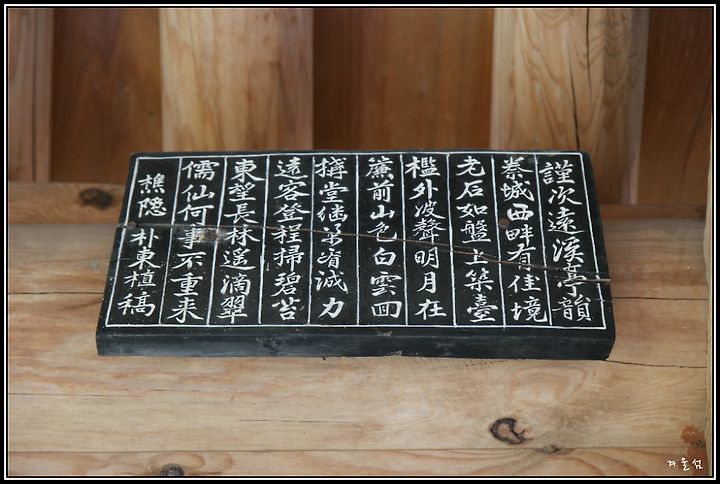 謹次遠溪亭韻
秦城西畔有佳境
老石如盤上築臺
檻外波聲明月在
簾前山色白雲囬
搆堂继省誠力
遠客登程掃碧苔
東望長林遙滴翠
儒仙何事不重来
樵隐 朴東植稿
겨울섬